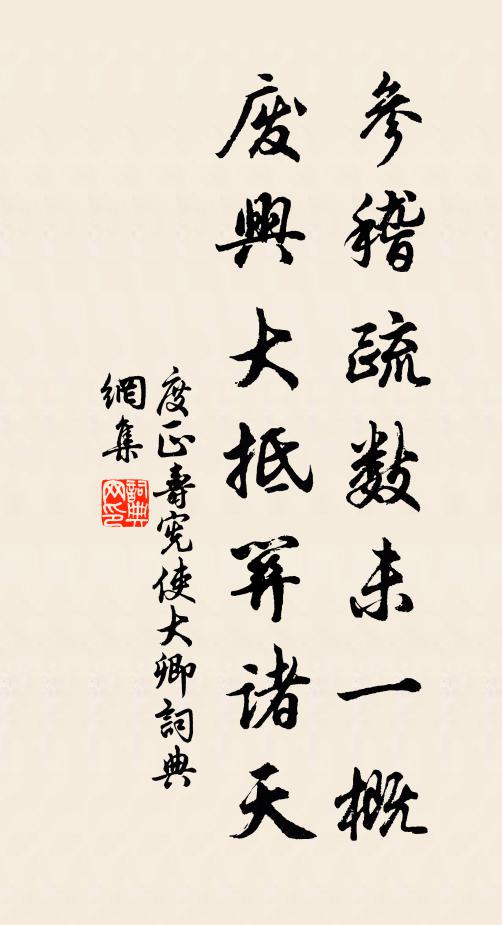 參稽疏数未一概
廢興大抵関諸天
度正壽憲使大卿詞典
網集
詞典
网印